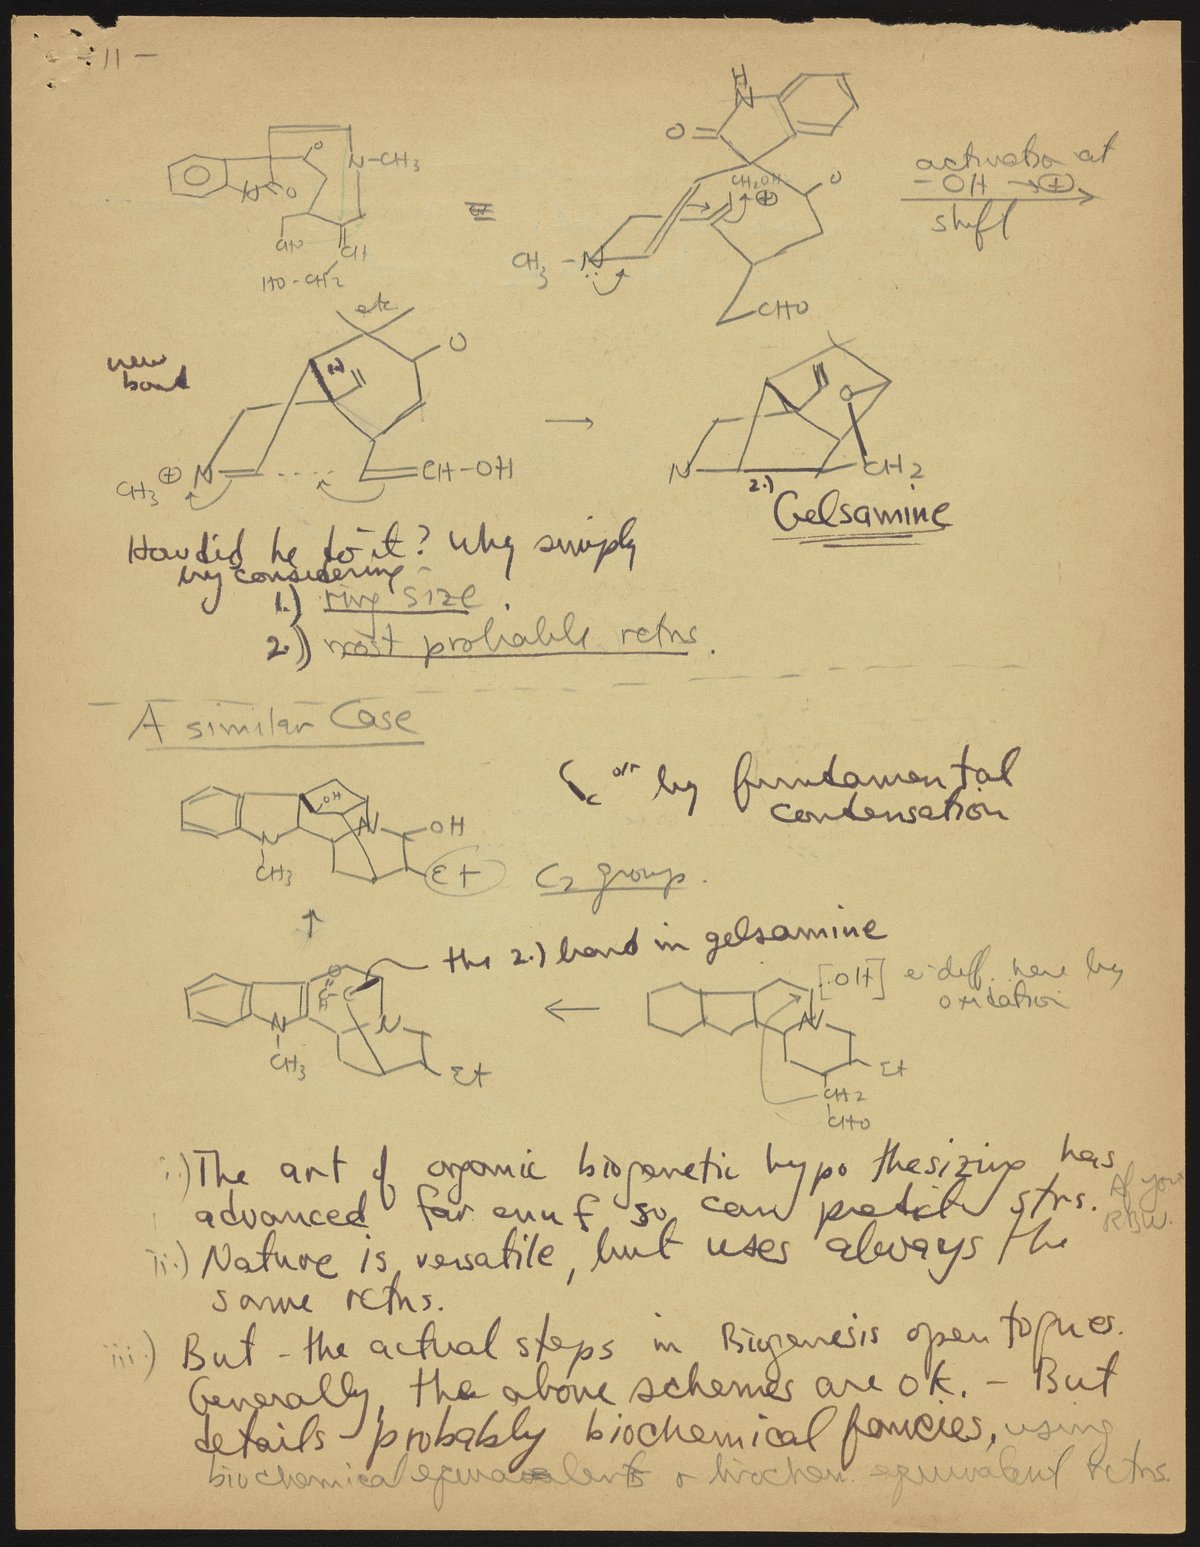 - 11 -
H
N
O
O
N-CH3
O
O
CH2OH
⊕
activation at
- OH → ⊕
shift
CH3 - N
CHO
CH
HO - CH2
etc
O
new
bond
1.)
O
CH3 ⊕ N
CH-OH
N
CH2
2.)
Gelsamine
How did he do it? Why simply
by considering -
1.) ring size
2.) most probable rctns.
A similar Case
by fundamental
condensation
OH
N
OH
N
CH3
Et
C2 group.
↑
the 2.) bond in gelsamine
[OH] e-def. here by
oxidation
N
N
CH3
Et
←
N
Et
CH2
CHO
i.) The art of organic biogenetic hypothesizing has
advanced far enuf so can predict strs. If your
RBW.
ii.) Nature is versatile, but uses always the
same rctns.
iii.) But - the actual steps in Biogenesis open to ques.
Generally, the above schemes are OK. - But
details probably biochemical fancies, using
biochemical equivalents & biochem. equivalent rctns.